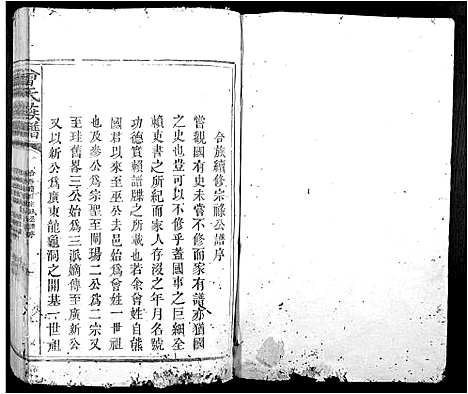 合族續修宗祿公譜序
嘗觀國有史未嘗不修而家有譜亦猶國
之史也豈可以不修乎蓋國事之巨細全
賴吏書之所紀而家人存沒之年月名號
功德實賴譜牒之所載也若余曾姓自鄫
國君以來至巫公去邑始為曾姓一世祖
及參公為宗聖至闕瑒二公為二宗又
至珪舊畧三公始為三派嫡傳至廣新公
又以新公為廣東龍龜洞之開基一世祖
曾氏族譜